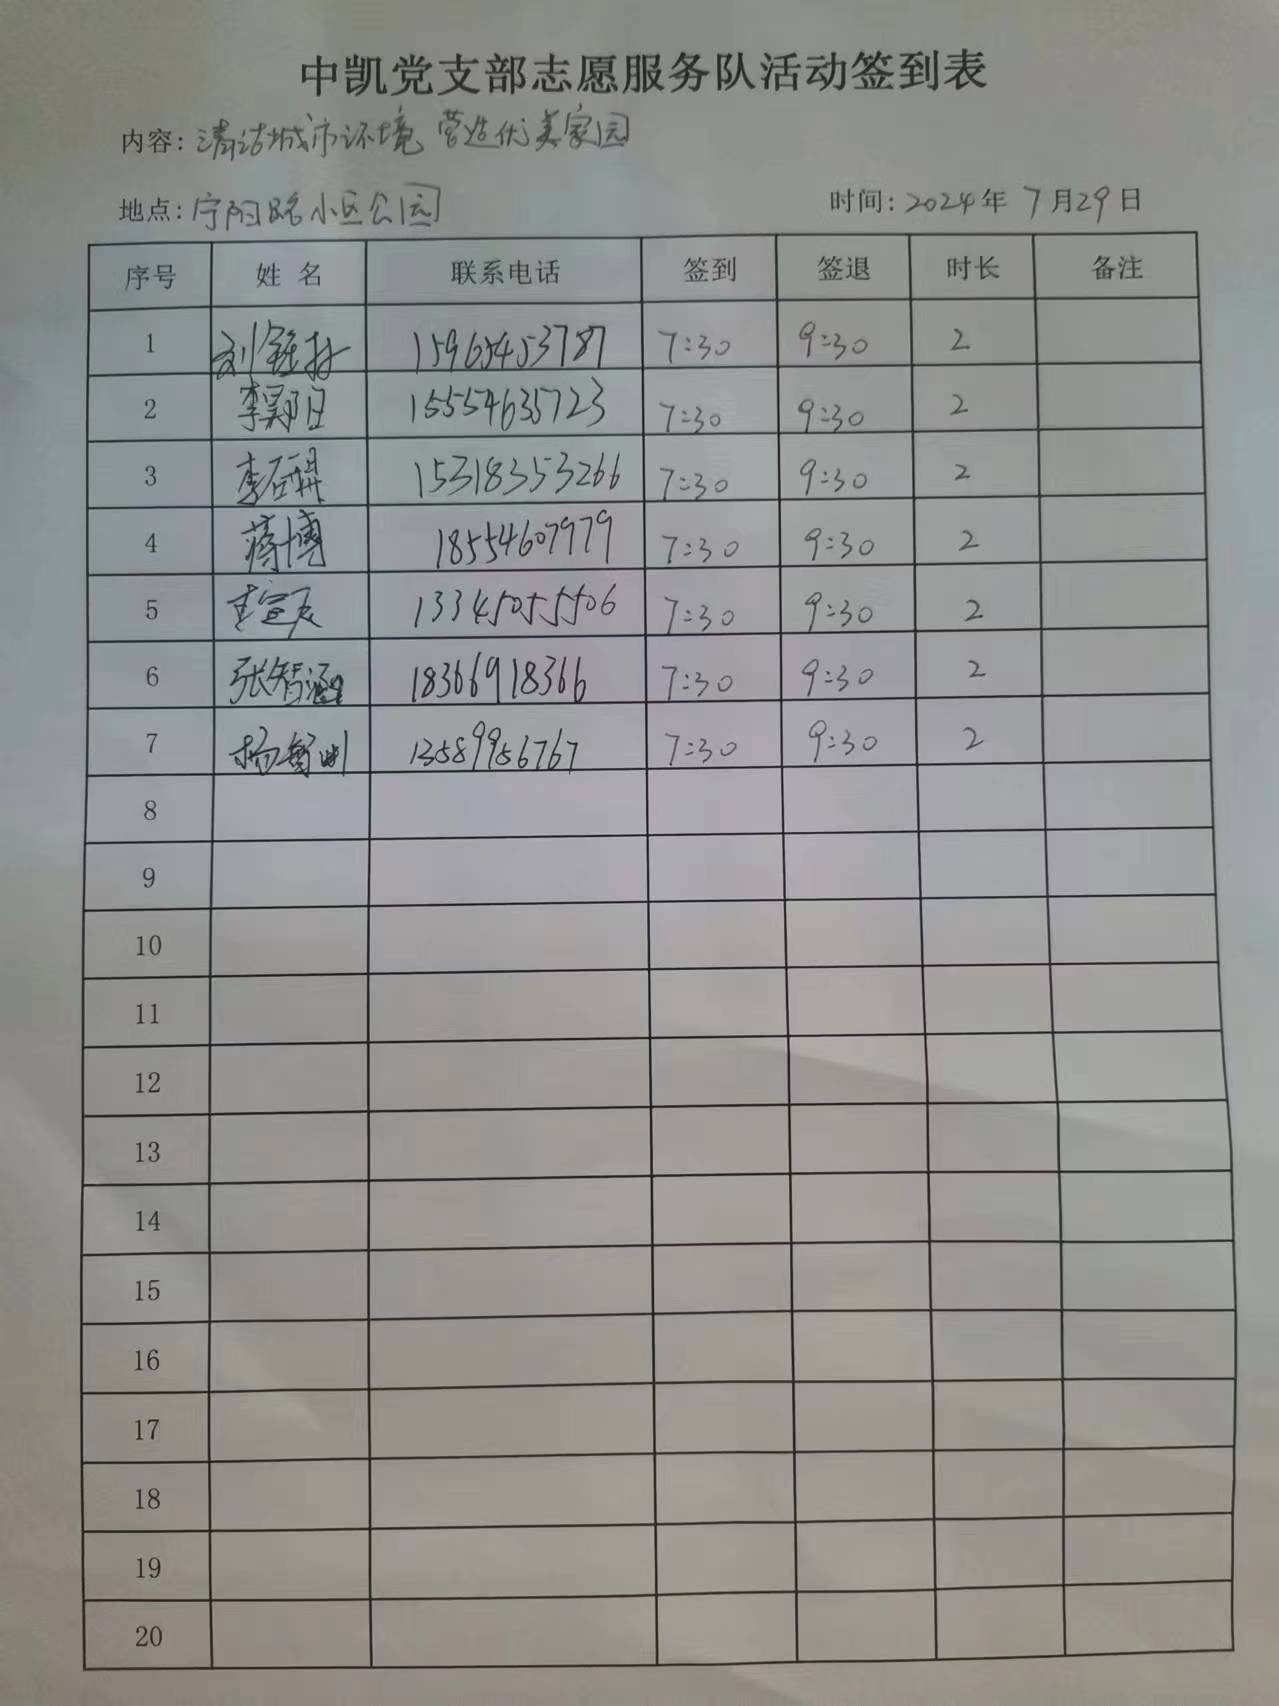 中凯党支部志愿服务队活动签到表
内容: 清洁城市环境 营造优美家园
地点: 宁阳路小区公园 时间: 2024年 7月29日
序号 姓 名 联系电话 签到 签退 时长 备注
1 刘 15965453787 7:30 9:30 2
2 李昊阳 15554635723 7:30 9:30 2
3 李 15318353266 7:30 9:30 2
4 蒋博 18554607979 7:30 9:30 2
5 13345055506 7:30 9:30 2
6 张智涵 18366918366 7:30 9:30 2
7 杨 13589956767 7:30 9:30 2
8
9
10
11
12
13
14
15
16
17
18
19
20